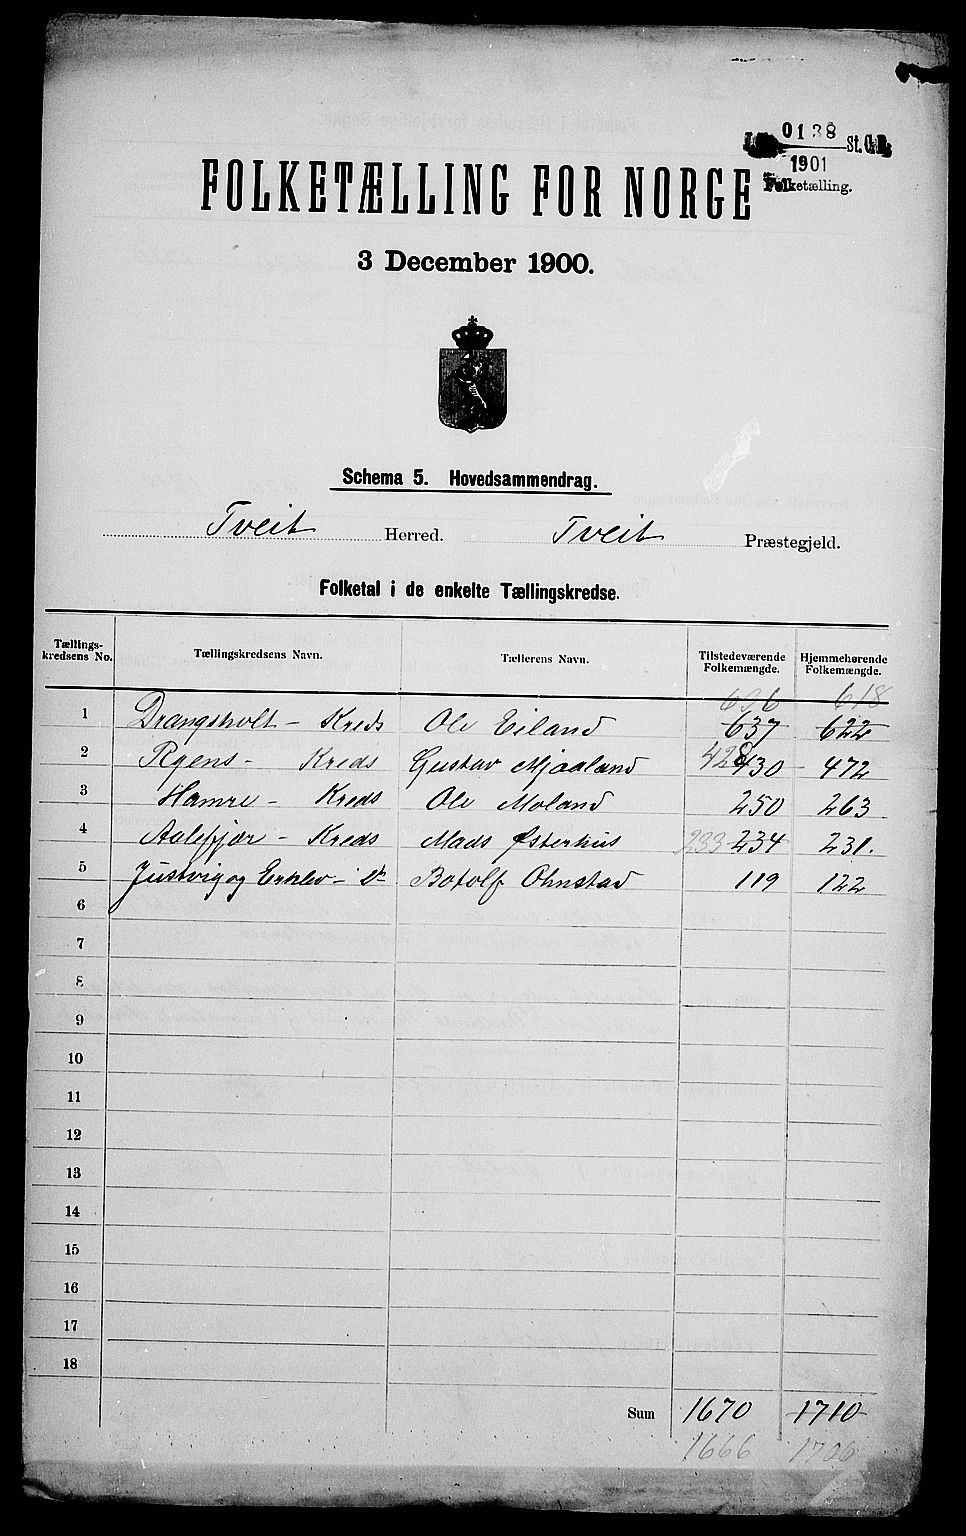 0138 St. C. B.
1901
Folketælling.
FOLKETÆLLING FOR NORGE
3 December 1900.
Schema 5. Hovedsammendrag.
Tveit Herred. Tveit Præstegjeld.
Folketal i de enkelte Tællingskredse.
Tællings-kredsens No. Tællingskredsens Navn. Tællerens Navn. Tilstedeværende Folkemængde. Hjemmehørende Folkemængde.
636 618
1 Drangsholt - Kreds Ole Eiland 637 622
2 Ryens - Kreds Gustav Mjaaland 428 430 - 472
3 Hamre - Kreds Ole Moland 250 263
4 Aalefjær - Kreds Mads Østerhus 233 234 231.
5 Justvig og Erklev - do Botolf Ohnstad 119 122
6
7
8
9
10
11
12
13
14
15
16
17
18
Sum 1670 1710
1666 1706